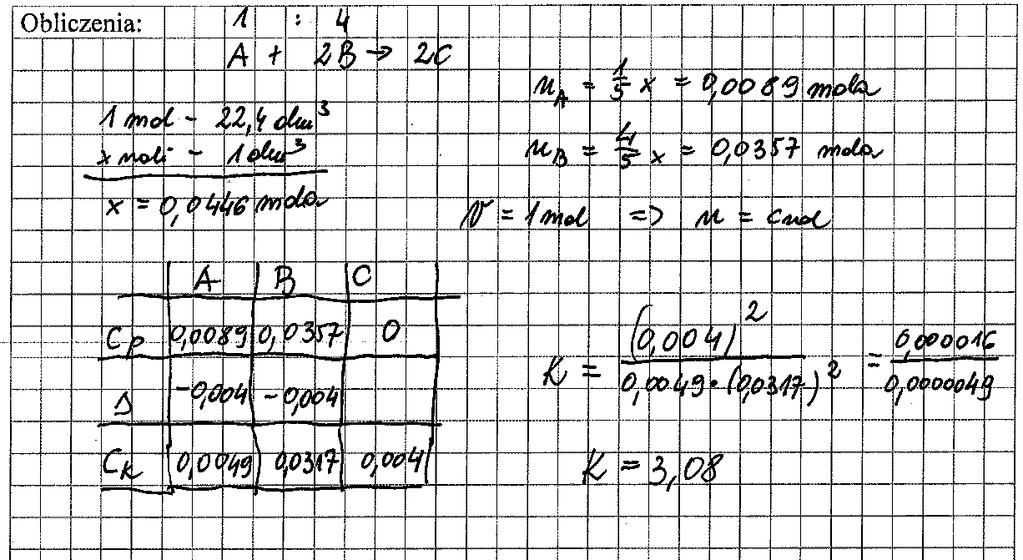 Obliczenia:
1 : 4
A + 2B → 2C
1 mol - 22,4 dm³
x moli - 1 dm³
x = 0,0446 mola
n_A = 1/5 x = 0,0089 mola
n_B = 4/5 x = 0,0357 mola
V = 1 mol => n = cmol
A B C
Cp 0,0089 0,0357 0
Δ -0,004 -0,004
Ck 0,0049 0,0317 0,004
K = (0,004)² / 0,0049·(0,0317)² = 0,000016 / 0,0000049
K = 3,08